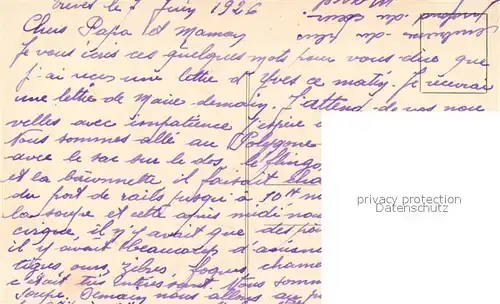 le 7 Juin 1926
Chers Papa et Maman
Je vous écris ces quelques mots pour vous dire que
j'ai reçu une lettre d'Yves ce matin. Je recevrai
une lettre de Marie demain. J'attend de vos nou
velles avec impatience J'espère
Nous sommes allé au Polygone
avec le sac sur le dos, le flingo,
et la baïonnette il faisait cha
du port de rails jusqu'à 10H
la soupe et cette après midi nou
cirque il y avait que des
il y avait beaucoup d'
tigres, ours, zèbres, foques, chame
c'était très intéressant. Nous somm
soupe. Demain nous allons au
privacy protection
Datenschutz